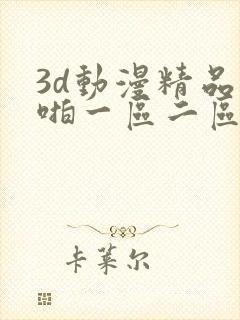 3d動漫精品
啪一區二區
卡莱尔